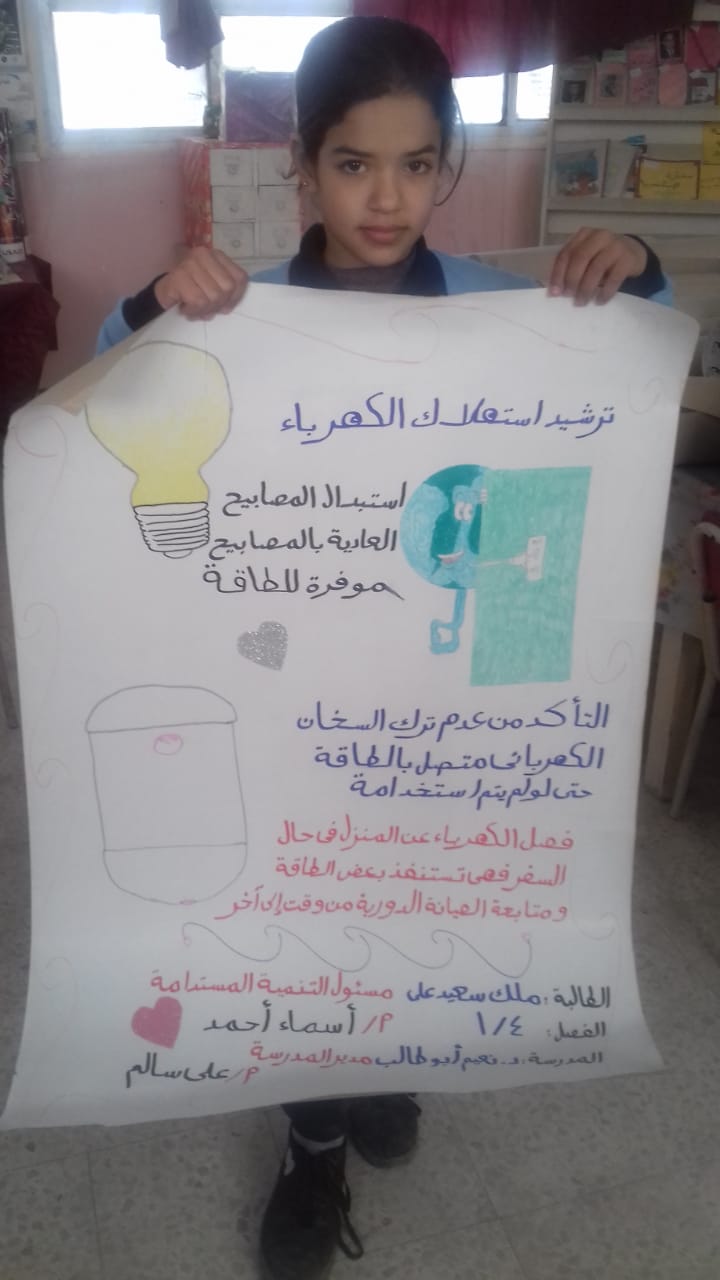 ترشيد استهلاك الكهرباء
استبدال المصابيح
العادية بالمصابيح
موفرة للطاقة
التأكد من عدم ترك السخان
الكهربائى متصل بالطاقة
حتى لو لم يتم استخدامة
فصل الكهرباء عن المنزل فى حال
السفر فهى تستنفذ بعض الطاقة
ومتابعة الصيانة الدورية من وقت إلى آخر
الطالبة : ملك سعيد على مسئول التنمية المستدامة
الفصل : ١/٤ م/ أسماء أحمد
المدرسة : د. نعيم أبو طالب مدير المدرسة
م/ على سالم